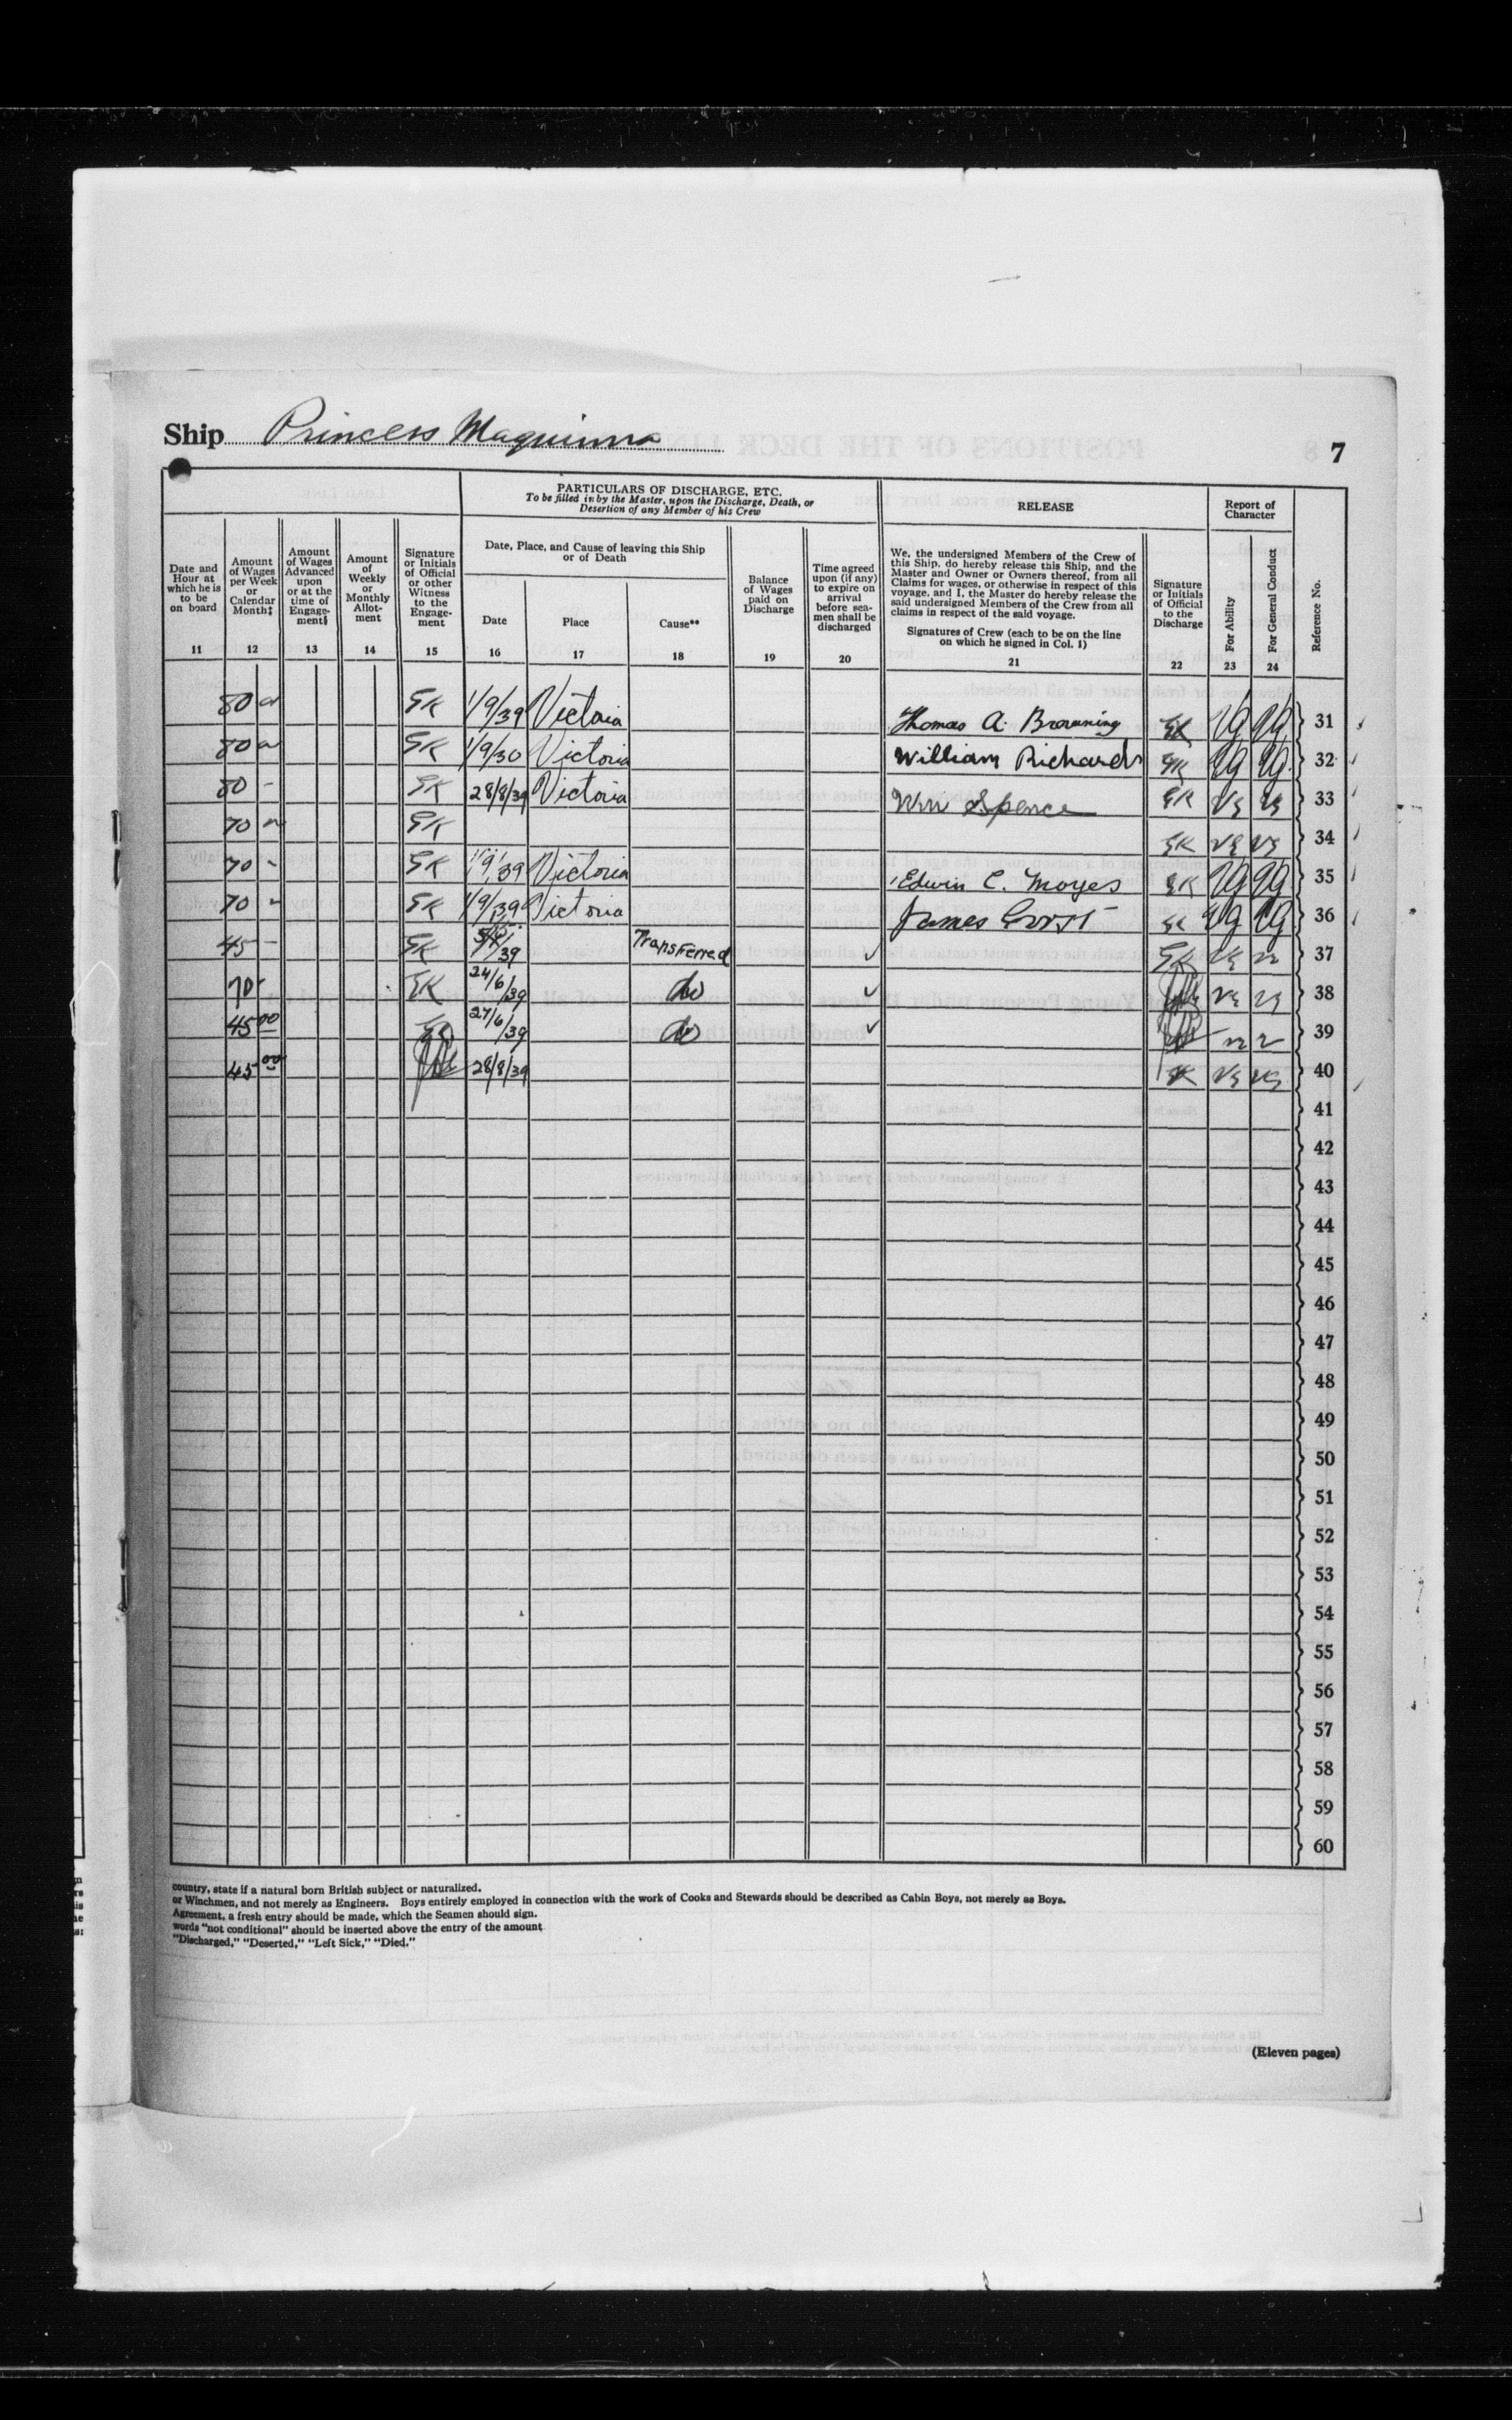 Ship Princess Maquinna 7
PARTICULARS OF DISCHARGE, ETC.
To be filled in by the Master, upon the Discharge, Death, or
Desertion of any Member of his Crew
RELEASE
Report of
Character
Date and
Hour at
which he is
to be
on board
11
Amount
of Wages
per Week
or
Calendar
Month‡
12
Amount
of Wages
Advanced
upon
or at the
time of
Engage-
ment§
13
Amount
of
Weekly
or
Monthly
Allot-
ment
14
Signature
or Initials
of Official
or other
Witness
to the
Engage-
ment
15
Date, Place, and Cause of leaving this Ship
or of Death
Date
16
Place
17
Cause**
18
Balance
of Wages
paid on
Discharge
19
Time agreed
upon (if any)
to expire on
arrival
before sea-
men shall be
discharged
20
We, the undersigned Members of the Crew of
this Ship, do hereby release this Ship, and the
Master and Owner or Owners thereof, from all
Claims for wages, or otherwise in respect of this
voyage, and I, the Master do hereby release the
said undersigned Members of the Crew from all
claims in respect of the said voyage.
Signatures of Crew (each to be on the line
on which he signed in Col. 1)
21
Signature
or Initials
of Official
to the
Discharge
22
For Ability
23
For General Conduct
24
Reference No.
80 GK 1/9/39 Victoria Thomas A. Browning GK Vg Vg 31
80 GK 1/9/30 Victoria William Richards GK Vg Vg 32
80 - GK 28/8/39 Victoria Wm Spence GK Vg Vg 33
70 GK GK Vg Vg 34
70 - GK 1/9/39 Victoria Edwin C. Moyes GK Vg Vg 35
70 - GK 1/9/39 Victoria James GK Vg Vg 36
45 - GK /39 Transferred ✓ GK Vg 37
70 - GK 24/6/39 do ✓ Vg Vg 38
45 00 GK 27/6/39 do ✓ 39
45 00 28/8/39 GK Vg Vg 40
41
42
43
44
45
46
47
48
49
50
51
52
53
54
55
56
57
58
59
60
country, state if a natural born British subject or naturalized.
or Winchmen, and not merely as Engineers. Boys entirely employed in connection with the work of Cooks and Stewards should be described as Cabin Boys, not merely as Boys.
Agreement, a fresh entry should be made, which the Seamen should sign.
words "not conditional" should be inserted above the entry of the amount
"Discharged," "Deserted," "Left Sick," "Died."
(Eleven pages)